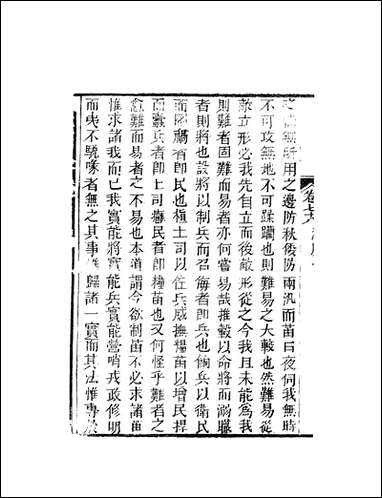 卷七六
之法無所用之邊防秋倭防兩汛而苗日夜伺我無時
不可攻無地不可蹂躪也則難易之大較也然難易從
敵立形必我先自立而後敵形從之今我且未能為我
則難者固難而易者亦何嘗易哉推轂以命將而溺職
者則將也設將以制兵而召侮者即兵也餉兵以衛民
而図禍者即民也植土司以佐兵威撫糯苗以增民捍
而釁兵者即土司釁民者即糯苗也又何怪乎難者之
愈難而易者之不易也本道謂今欲制苗不必求諸苗
惟求諸我而已我實能將實能兵實能營哨戎政修明
而夷不駾喙者無之其事歸諸一實而其法惟專於